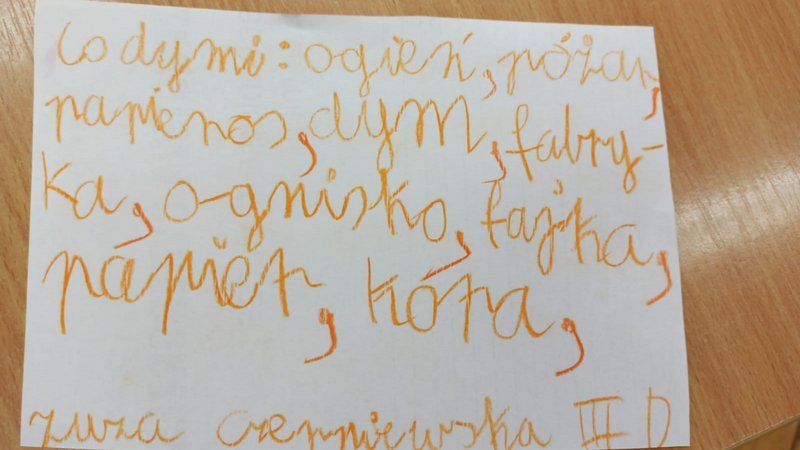 Co dymi: ogień, póżar,
papieros, dym, fabry-
ka, ognisko, fajka,
papier, kóra,
zuza czerniewska III D